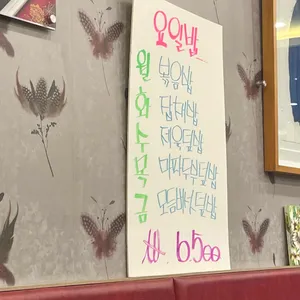 요일밥
월 볶음밥
화 잡채밥
수 제육덮밥
목 마파두부덮밥
금 모듬버섯덮밥
₩. 6500